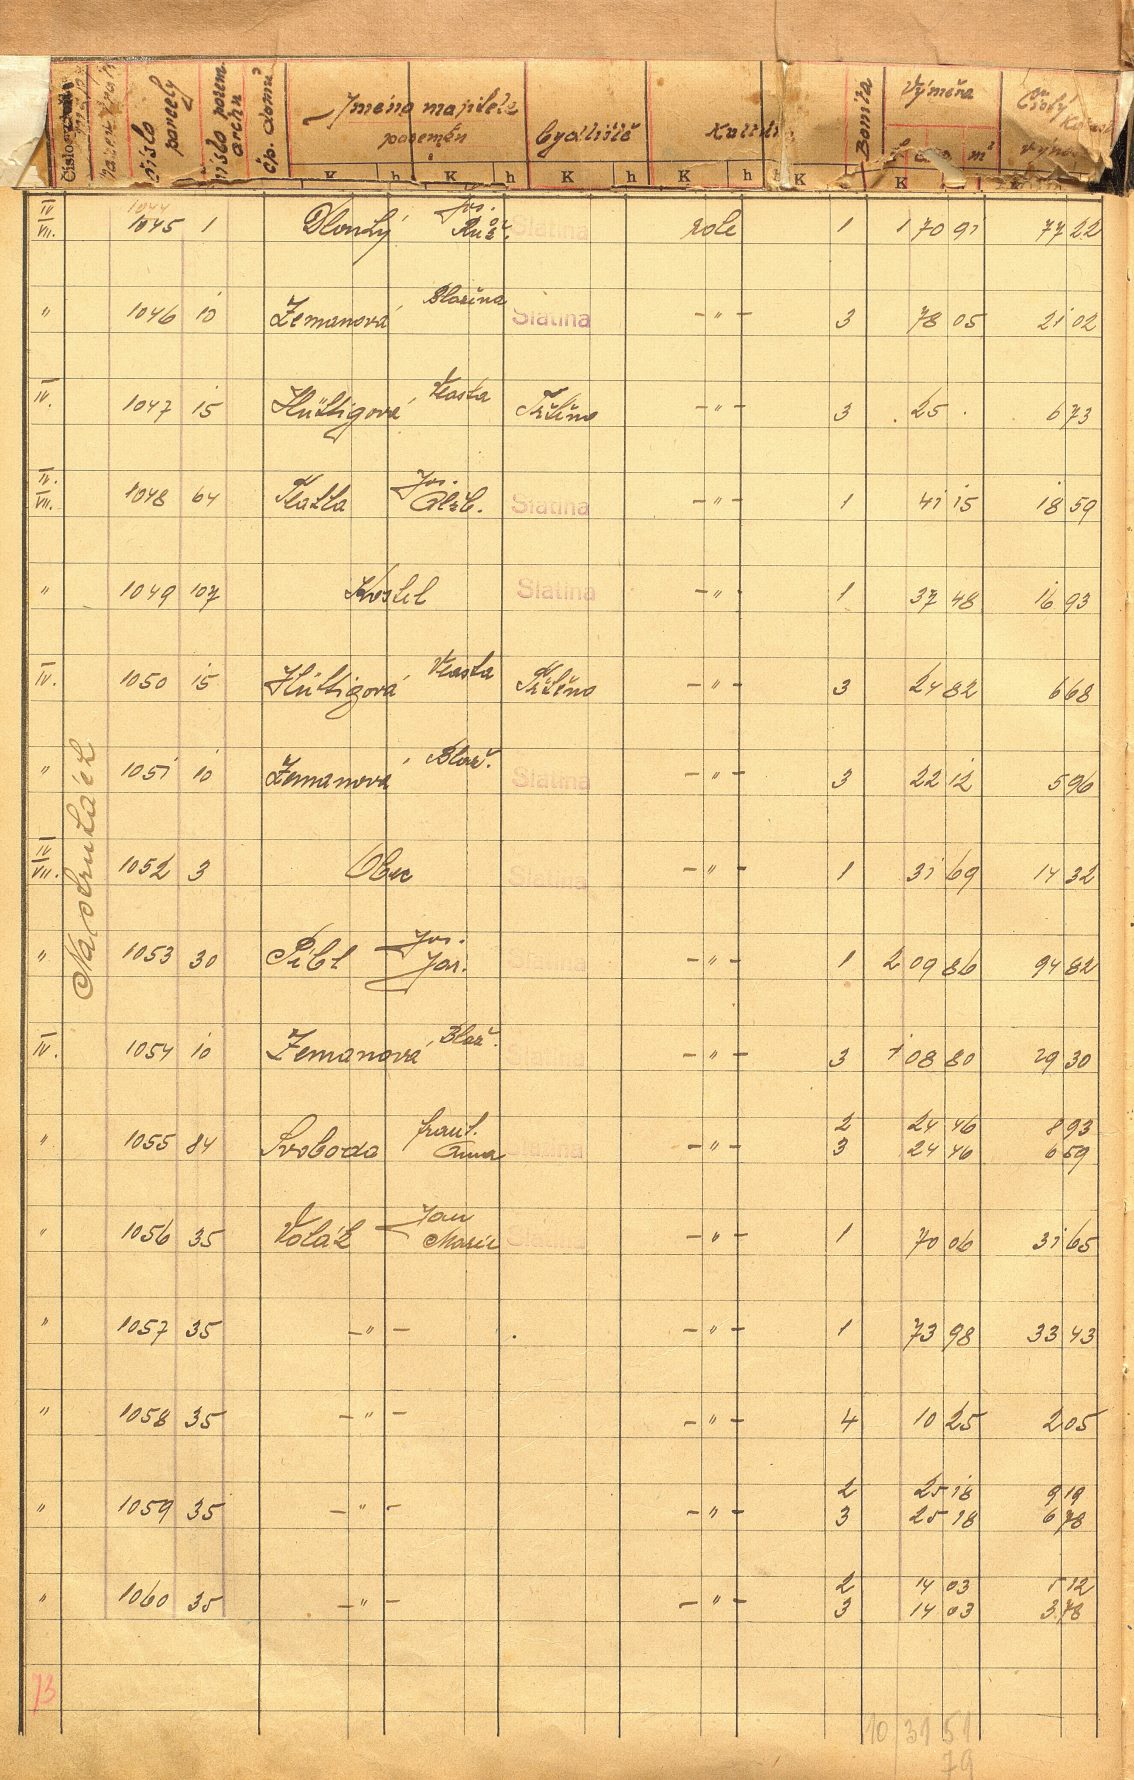 číslo parcely číslo pozem. archu čp. domu Jméno majitele pozemku bydliště Bonita Výměra Čistý
K h K h K h K h K K
IV VII. 1044 1045 1 Dlouhý Jos. Růž. Slatina role 1 1 70 91 77 22
" 1046 10 Zemanová Blažena Slatina - " - 3 78 05 21 02
IV. 1047 15 Hüttigová Vlasta - " - 3 25 . 6 73
IV. VII. 1048 64 Jos. Alžb. Slatina - " - 1 41 15 18 59
" 1049 107 Kostel Slatina - " - 1 37 48 16 93
IV. 1050 15 Hüttigová Vlasta - " - 3 24 82 6 68
" 1051 10 Zemanová Blaž. Slatina - " - 3 22 12 5 96
IV VII. 1052 3 Obec Slatina - " - 1 31 69 14 32
" 1053 30 Jos. - " - 1 2 09 86 94 82
IV. 1054 10 Zemanová Blaž. Slatina - " - 3 1 08 80 29 30
" 1055 84 Svoboda Frant. Anna Slatina - " - 2 24 46 8 93
3 24 46 6 59
" 1056 35 Volák Jan Marie Slatina - " - 1 70 06 31 65
" 1057 35 - " - - " - 1 73 98 33 43
" 1058 35 - " - - " - 4 10 25 2 05
" 1059 35 - " - - " - 2 25 18 9 19
3 25 18 6 78
" 1060 35 - " - - " - 2 14 03 5 12
3 14 03 3 78
73
10 31 51
79